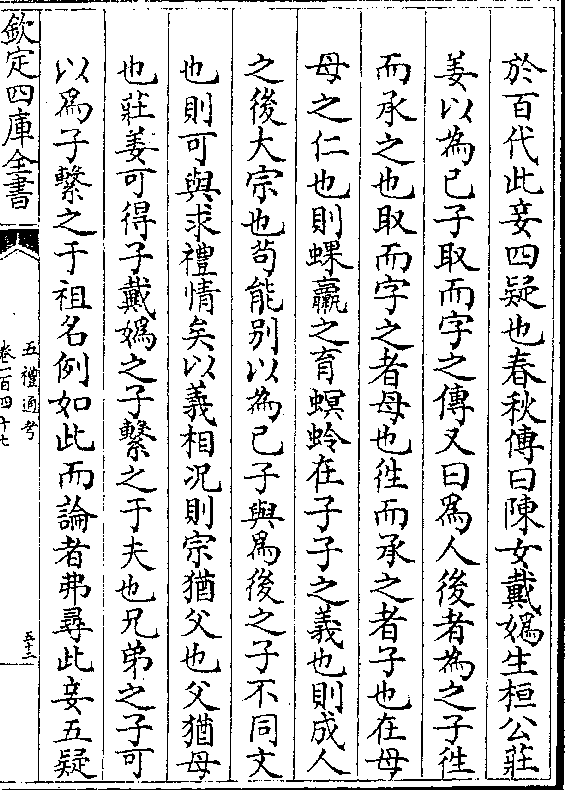 於百代此妾四疑也春秋傳曰陳女戴媯生桓公莊
姜以為已子取而字之傳又曰爲人後者為之子徃
而承之也取而字之者母也徃而承之者子也在母
母之仁也則蜾蠃之育螟蛉在子子之義也則成人
之後大宗也苟能别以為已子與爲後之子不同文
也則可與求禮情矣以義相况則宗猶父也父猶母
也莊姜可得子戴媯之子繫之于夫也兄弟之子可
以爲子繫之于祖名例如此而論者弗尋此妾五疑
欽定四庫全書
五禮通考
卷一百四十七
五十三